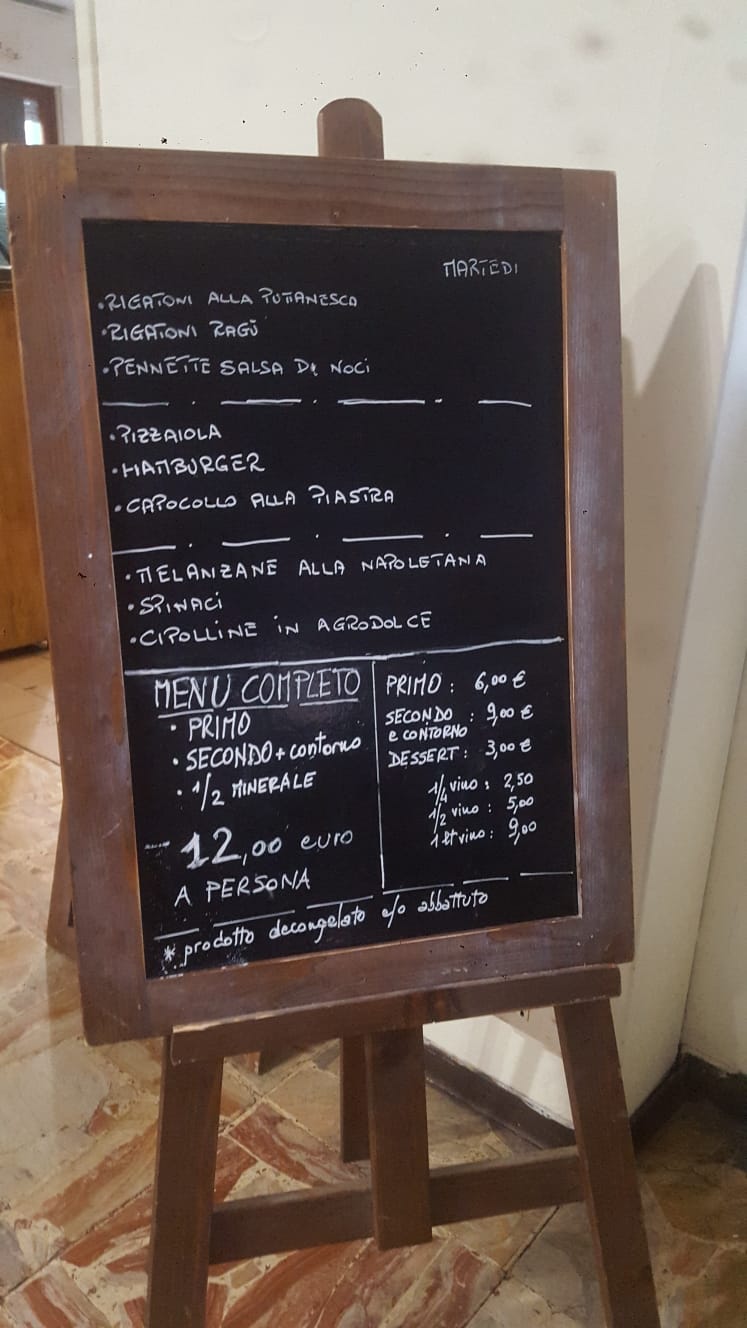 MARTEDI
• RIGATONI ALLA PUTTANESCA
• RIGATONI RAGÙ
• PENNETTE SALSA DI NOCI
• PIZZAIOLA
• HAMBURGER
• CAPOCOLLO ALLA PIASTRA
• MELANZANE ALLA NAPOLETANA
• SPINACI
• CIPOLLINE IN AGRODOLCE
MENU COMPLETO
• PRIMO
• SECONDO + contorno
• 1/2 MINERALE
12,00 euro
A PERSONA
PRIMO : 6,00 €
SECONDO : 9,00 €
e CONTORNO
DESSERT : 3,00 €
1/4 vino : 2,50
1/2 vino : 5,00
1 lt vino : 9,00
* prodotto decongelato e/o abbattuto